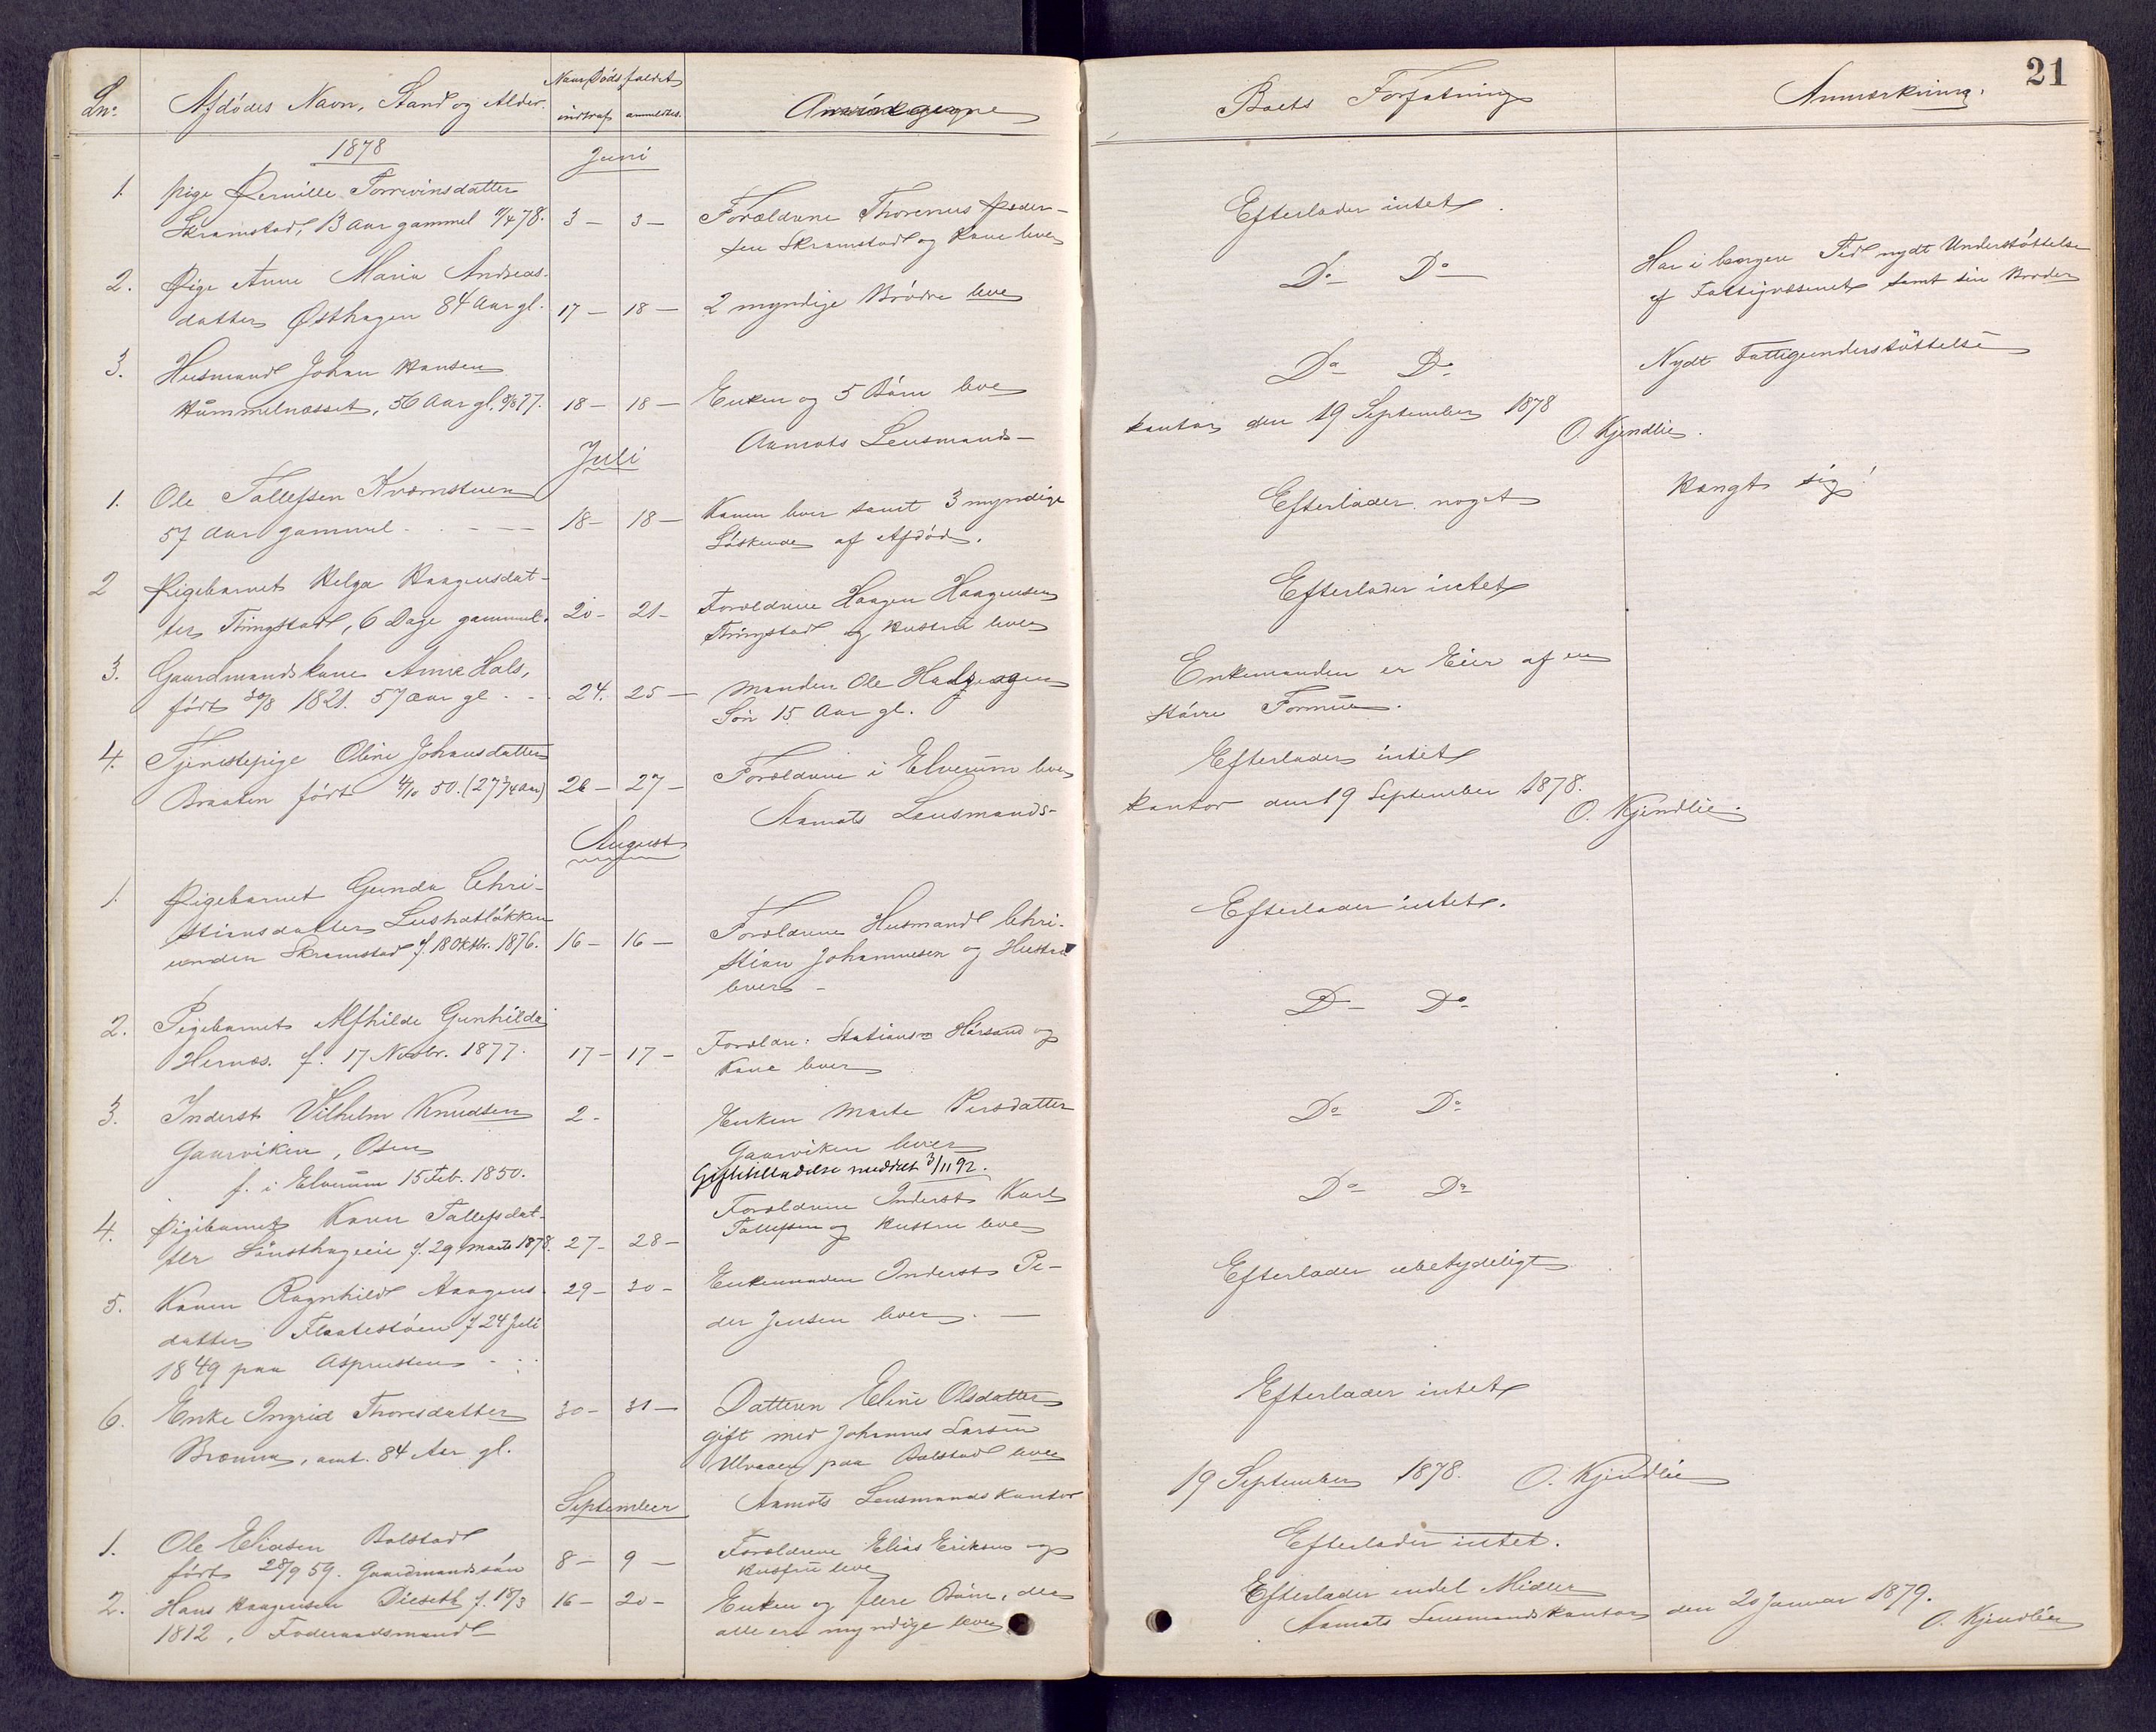 21
Lnº Afdødes Navn, Stand og Alder. Naar Dødsfaldet indtraf anmeldtes. Boets Forfatning Anmærkning.
1878 Juni
1. Pige Pernille Torrevinsdatter Forældrene Thorenus Peder- Efterlader intet.
Skramstad, 13 Aar gammel 78. 3 — 3 — sen Skramstad og Kone lever
2. Pige Anne Maria Andreas- Dº Dº Har i længere Tid nydt Understøttelse
datter Østhagen 84 Aar gl. 17 — 18 — 2 myndige Brødre leve af Fattigvæsenet samt sin Broder
3. Husmand Johan Hansen Dº Dº Nydt Fattigunderstøttelse
Hummelnæsset, 56 Aar gl. 18 — 18 — Enken og 5 Børn leve
Aamots Lensmands- kontor den 19 September 1878
O. Kjendlie.
Juli
1. Ole Tollefsen Kværnstuen Konen lever samt 3 myndige Efterlader noget Hængt sig!
57 Aar gammel 18 — 18 — Søskende af Afdøde.
2 Pigebarnet Helga Haagensdat- Forældrene Haagen Haagensen Efterlader intet
ter Thingstad, 6 Dage gammel. 20 — 21 — Thingstad og Hustru lever
3. Gaardmandskone Anne Hals, Manden Ole Enkemanden er Eier af en
født 30/8 1821. 57 Aar gl 24. 25 — Søn 15 Aar gl. større Formue.
4. Tjenestepige Oline Johansdatter Forældrene i Elverum lever Efterlader intet
Braaten født 4/10 50. (27 3/4 Aar) 26 — 27 —
Aamots Lensmands- kontor den 19 September 1878.
O. Kjendlie.
August
1. Pigebarnet Gunda Chri- Efterlader intet.
stiansdatter Lushatløkken Forældrene Husmand Chri-
under Skramstad f. 18 Oktbr. 1876. 16 — 16 — stian Johannesen og Hustru
lever —
2. Pigebarnet Alfhilde Gunhilda Dº Dº
Hernæs. f. 17 Novbr. 1877. 17 — 17 — Forældre: Hørsand og
Kone lever
3. Inderst Vilhelm Knudsen 2 — Enken Marte Persdatter Dº Dº
Gaarviken, Osen Gaarviken lever
f. i Elverum 15 Feb. 1850. Giftetilladelse meddelt 3/11 92.
4. Pigebarnet Karen Tollefsdat- Forældrene Inderst Karl Dº Dº
ter Sønsthageeie f. 29 Marts 1878. 27 — 28 — Tollefsen og Hustru leve
5. Konen Ragnhild Haagens- 29 — 30 — Enkemanden Inderst Pe- Efterlader ubetydeligt
datter Flaatestøen f 24 Juli der Jensen lever. —
1849 paa Asprusten
6. Enke Ingrid Thoresdatter 30 — 31 — Datteren Eline Olsdatter Efterlader intet
Brænna, omt. 84 Aar gl. gift med Johannes Larsen
Ulvaaen paa Bolstad lever
Aamots Lensmandskontor 19 September 1878. O. Kjendlie
September
1. Ole Eliasen Bolstad Forældrene Elias Eriksen og Efterlader intet.
født 28/9 59. Gaardmandssøn 8 — 9 — Hustru leve
2. Hans Haagensen Diesetl f. 18/3 16 — 20 — Enken og flere Børn, der Efterlader endel Midler
1812, Føderaadsmand alle ere myndige lever
Aamots Lensmandskontor den 20 Januar 1879.
O. Kjendlie